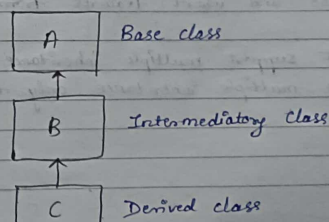 A Base class
B Intermediatory Class
C Derived class